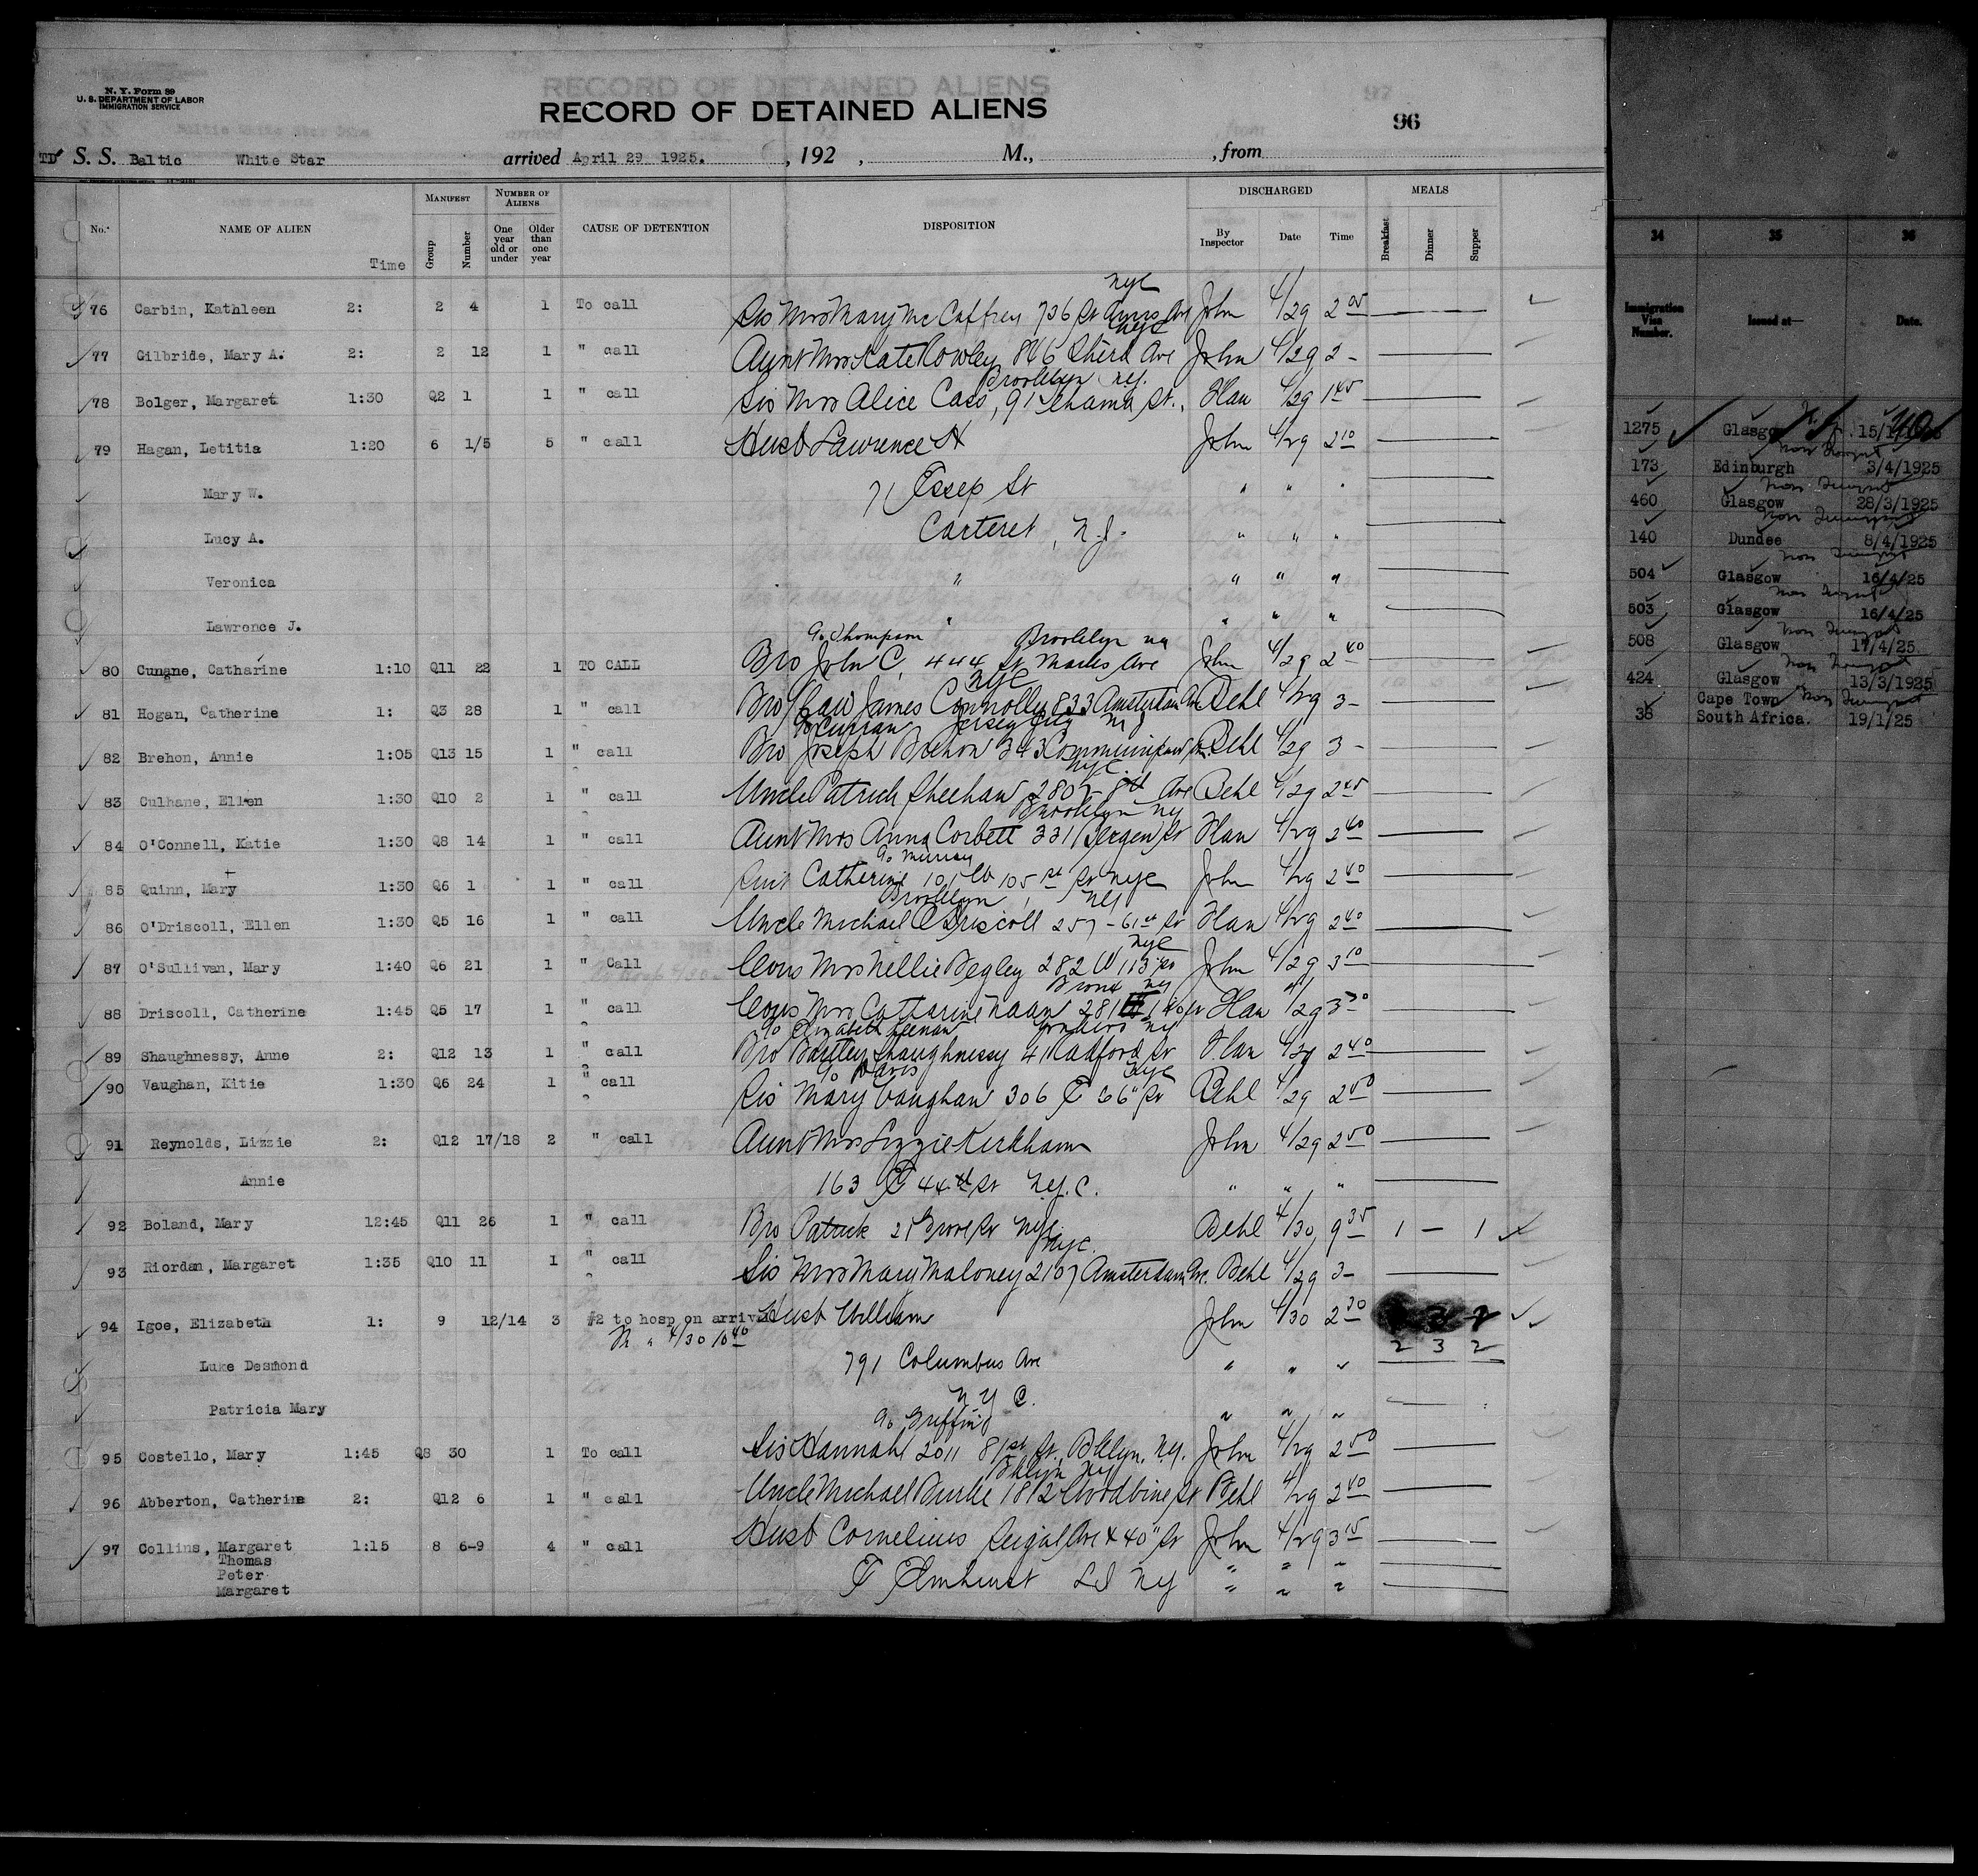 N. Y. Form 89
U. S. DEPARTMENT OF LABOR
IMMIGRATION SERVICE
RECORD OF DETAINED ALIENS
96
TD S. S. Baltic White Star arrived April 29 1925. , 192 , M., , from
No. NAME OF ALIEN Time MANIFEST Group Number NUMBER OF ALIENS One year old or under Older than one year CAUSE OF DETENTION DISPOSITION DISCHARGED By Inspector Date Time MEALS Breakfast Dinner Supper
nyc
76 Carbin, Kathleen 2: 2 4 1 To call Sis Mrs Mary McCaffrey 736 St Anns Ave John 4/29 2 05
nyc
77 Gilbride, Mary A. 2: 2 12 1 " call Aunt Mrs Kate Rowley 846 Third Ave John 4/29 2 -
Brooklyn ny.
78 Bolger, Margaret 1:30 Q2 1 1 " call Sis Mrs Alice Cass, 91 St., Han 4/29 1 45
79 Hagan, Letitia 1:20 6 1/5 5 " call Husb Lawrence H John 4/29 2 10
Mary W. 71 Essex St " " "
Lucy A. Carteret, N.J. " " "
Veronica " " " "
Lawrence J. " " " "
c/o Thompson Brooklyn ny
80 Cunane, Catharine 1:10 Q11 22 1 TO CALL Bro John C, 444 St Marks Ave John 4/29 2 40
nyc
81 Hogan, Catherine 1: Q3 28 1 " call Bro James Connolly 833 Amsterdam Ave Behl 4/29 3 -
c/o Curran Jersey City NJ
82 Brehon, Annie 1:05 Q13 15 1 " call Bro Joseph Brehon 343 Communipaw Ave. Behl 4/29 3 -
nyc.
83 Culhane, Ellen 1:30 Q10 2 1 " call Uncle Patrick Sheehan 2805 - 8th Ave Behl 4/29 2 45
Brooklyn ny
84 O'Connell, Katie 1:30 Q8 14 1 " call Aunt Mrs Anna Corbett 331 Bergen St Han 4/29 2 40
c/o Murray
85 Quinn, Mary 1:30 Q6 1 1 " call Catherine 101 W 105 st St nyc John 4/29 2 40
Brooklyn, ny
86 O'Driscoll, Ellen 1:30 Q5 16 1 " call Uncle Michael O'Driscoll 257 - 61st St Han 4/29 2 40
nyc
87 O'Sullivan, Mary 1:40 Q6 21 1 " Call Cous Mrs Nellie Begley 282 W 113 St John 4/29 3 10
Bronx ny
88 Driscoll, Catherine 1:45 Q5 17 1 " call Cous Mrs Catharine Naan 281 140 St Han 4/29 3 30
c/o Elizabeth Keenan Yonkers ny
89 Shaughnessy, Anne 2: Q12 13 1 " call Bro Bartley Shaughnessy 41 Radford St Han 4/29 2 40
c/o Davis nyc
90 Vaughan, Kitie 1:30 Q6 24 1 " call Sis Mary Vaughan 306 E 66" St Behl 4/29 2 50
91 Reynolds, Lizzie 2: Q12 17/18 2 " call Aunt Mrs Lizzie Kirkham John 4/29 2 50
Annie 163 E 44th St N.Y.C. " " "
92 Boland, Mary 12:45 Q11 26 1 " call Bro Patrick 21 Grove St nyc Behl 4/30 9 35 1 — 1
nyc.
93 Riordan, Margaret 1:35 Q10 11 1 " call Sis Mrs Mary Maloney 2107 Amsterdam Ave. Behl 4/29 3 -
94 Igoe, Elizabeth 1: 9 12/14 3 #2 to hosp on arrival Husb William John 4/30 2 30
4/30 10 40 2 3 2
Luke Desmond 791 Columbus Ave " " "
Patricia Mary N Y C. " " "
c/o Griffin
95 Costello, Mary 1:45 Q8 30 1 To call Sis Hannah 2011 81st St., Bklyn, N.Y. John 4/29 2 50
Bklyn Ny
96 Abberton, Catherine 2: Q12 6 1 " call Uncle Michael Burke 1812 Woodbine St Behl 4/29 2 40
97 Collins, Margaret 1:15 8 6-9 4 " call Husb Cornelius Seigal Ave & 40" St John 4/29 3 15
Thomas
Peter E Elmhurst L I NY " " "
Margaret " " "
34 35 36
Immigration Visa Number. Issued at— Date.
1275 Glasgow
173 Edinburgh 3/4/1925
460 Glasgow 28/3/1925
140 Dundee 8/4/1925
504 Glasgow 16/4/25
503 Glasgow 16/4/25
508 Glasgow 17/4/25
424 Glasgow 13/3/1925
38 Cape Town South Africa. 19/1/25